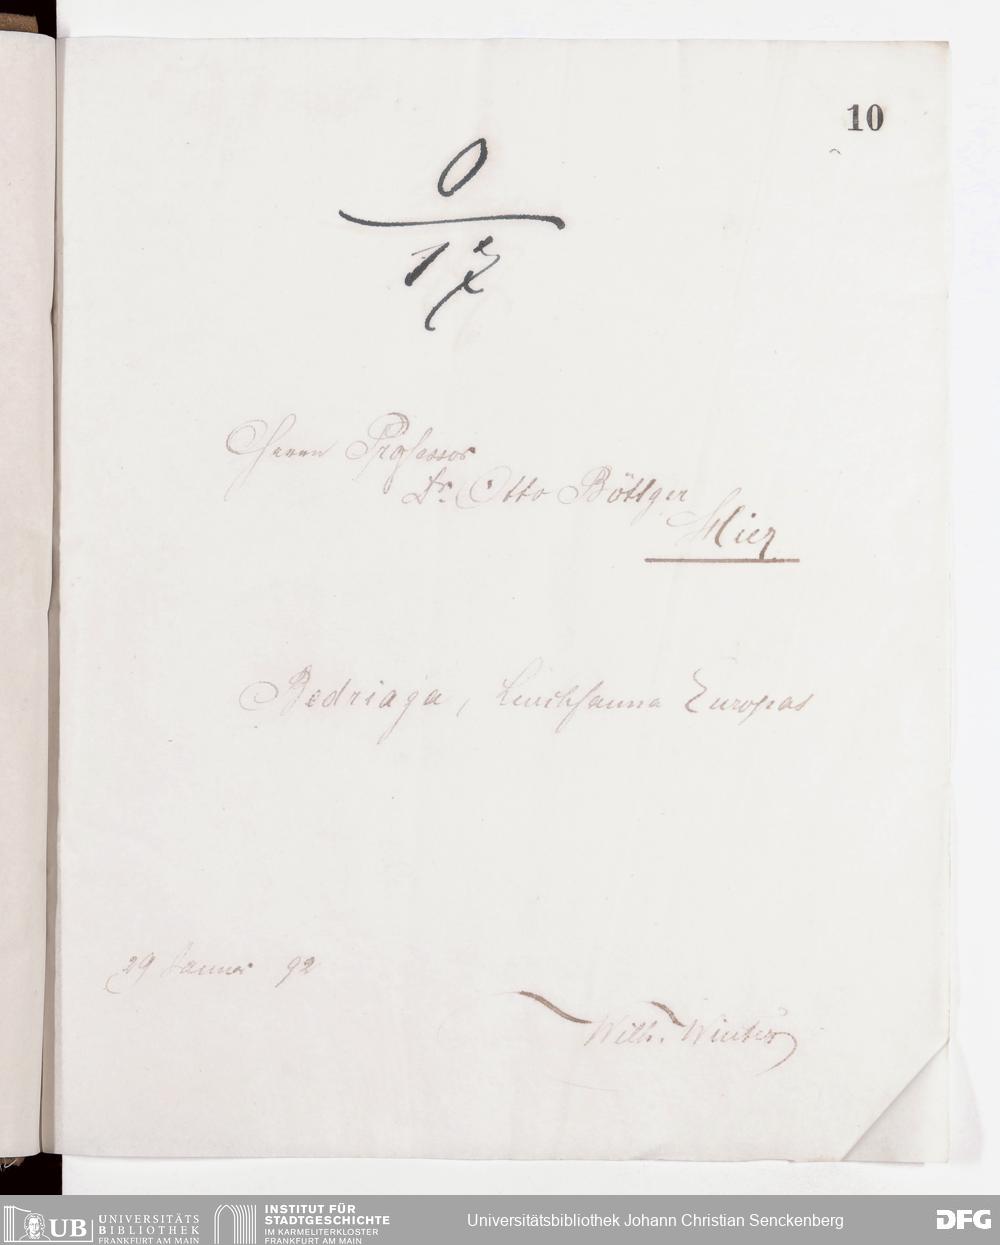 10
0
17
Herrn Professor
Dr. Otto Böttger
Hier
Bedriaga, Lurchfauna Europas
29 Januar 92
Wilh. Winter
UB UNIVERSITÄTS
BIBLIOTHEK
FRANKFURT AM MAIN
INSTITUT FÜR
STADTGESCHICHTE
IM KARMELITERKLOSTER
FRANKFURT AM MAIN
Universitätsbibliothek Johann Christian Senckenberg
DFG